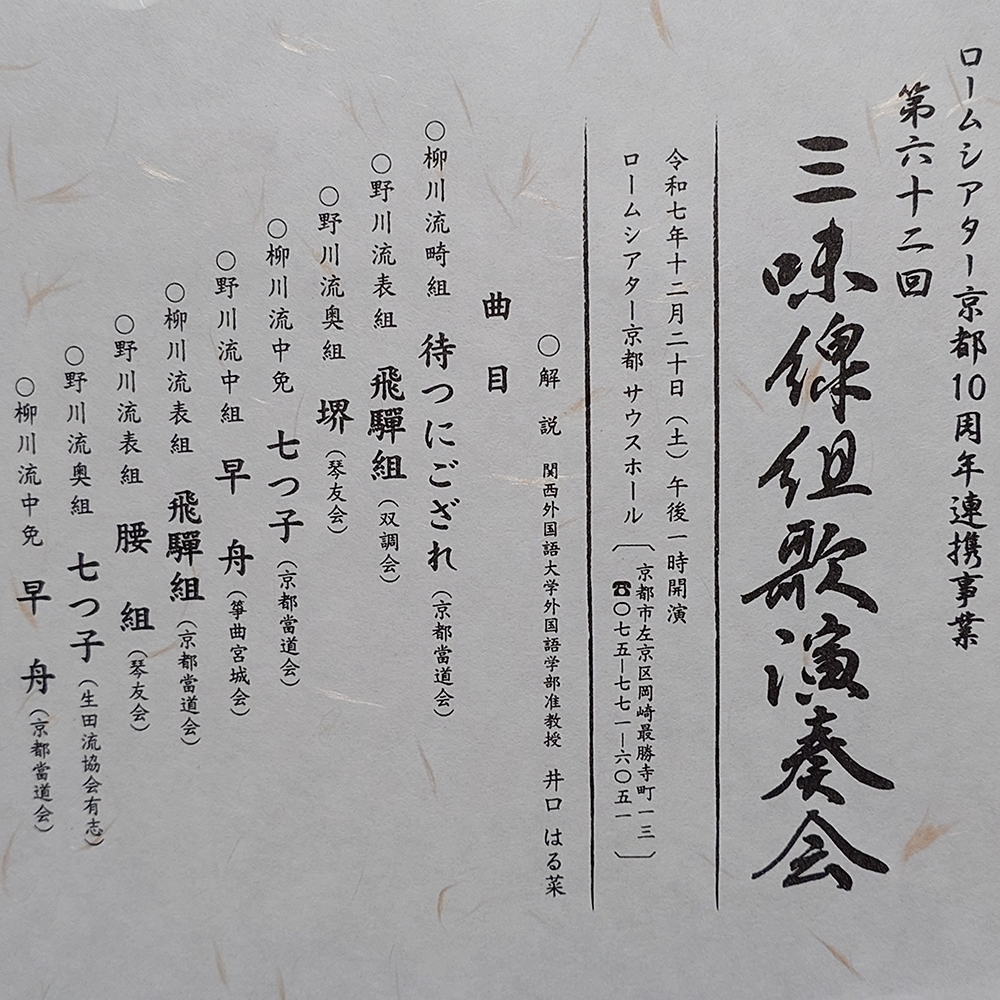 ロームシアター京都10周年連携事業
第六十二回
三味線組歌演奏会
令和七年十二月二十日（土）午後一時開演
ロームシアター京都 サウスホール
京都市左京区岡崎最勝寺町一三
☎〇七五ー七七一ー六〇五一
〇解 説 関西外国語大学外国語学部准教授 井口 はる菜
曲 目
〇柳川流畸組 待つにござれ（京都當道会）
〇野川流表組 飛驒組（双調会）
〇野川流奥組 堺（琴友会）
〇柳川流中免 七つ子（京都當道会）
〇野川流中組 早 舟（箏曲宮城会）
〇柳川流表組 飛驒組（京都當道会）
〇野川流表組 腰 組（琴友会）
〇野川流奥組 七つ子（生田流協会有志）
〇柳川流中免 早 舟（京都當道会）